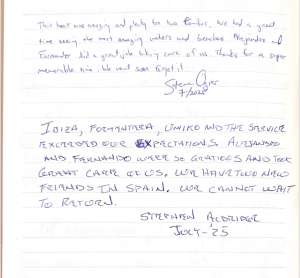 This boat was amazing and plenty for two families. We had a great
time seeing the most amazing waters and beaches. Alejandro and
Fernando did a great job taking care of us. Thanks for a super
memorable time. We wont soon forget it!
7/2025
IBIZA, FORMENTARA, UNIKO AND THE SERVICE
EXCEEDED OUR EXPECTATIONS. ALEJANDRO
AND FERNANDO WERE SO GRATIOUS AND TOOK
GREAT CARE OF US. WE HAVE TWO NEW
FRIENDS IN SPAIN. WE CANNOT WAIT
TO RETURN.
STEPHEN ALDRIDGE
JULY-'25